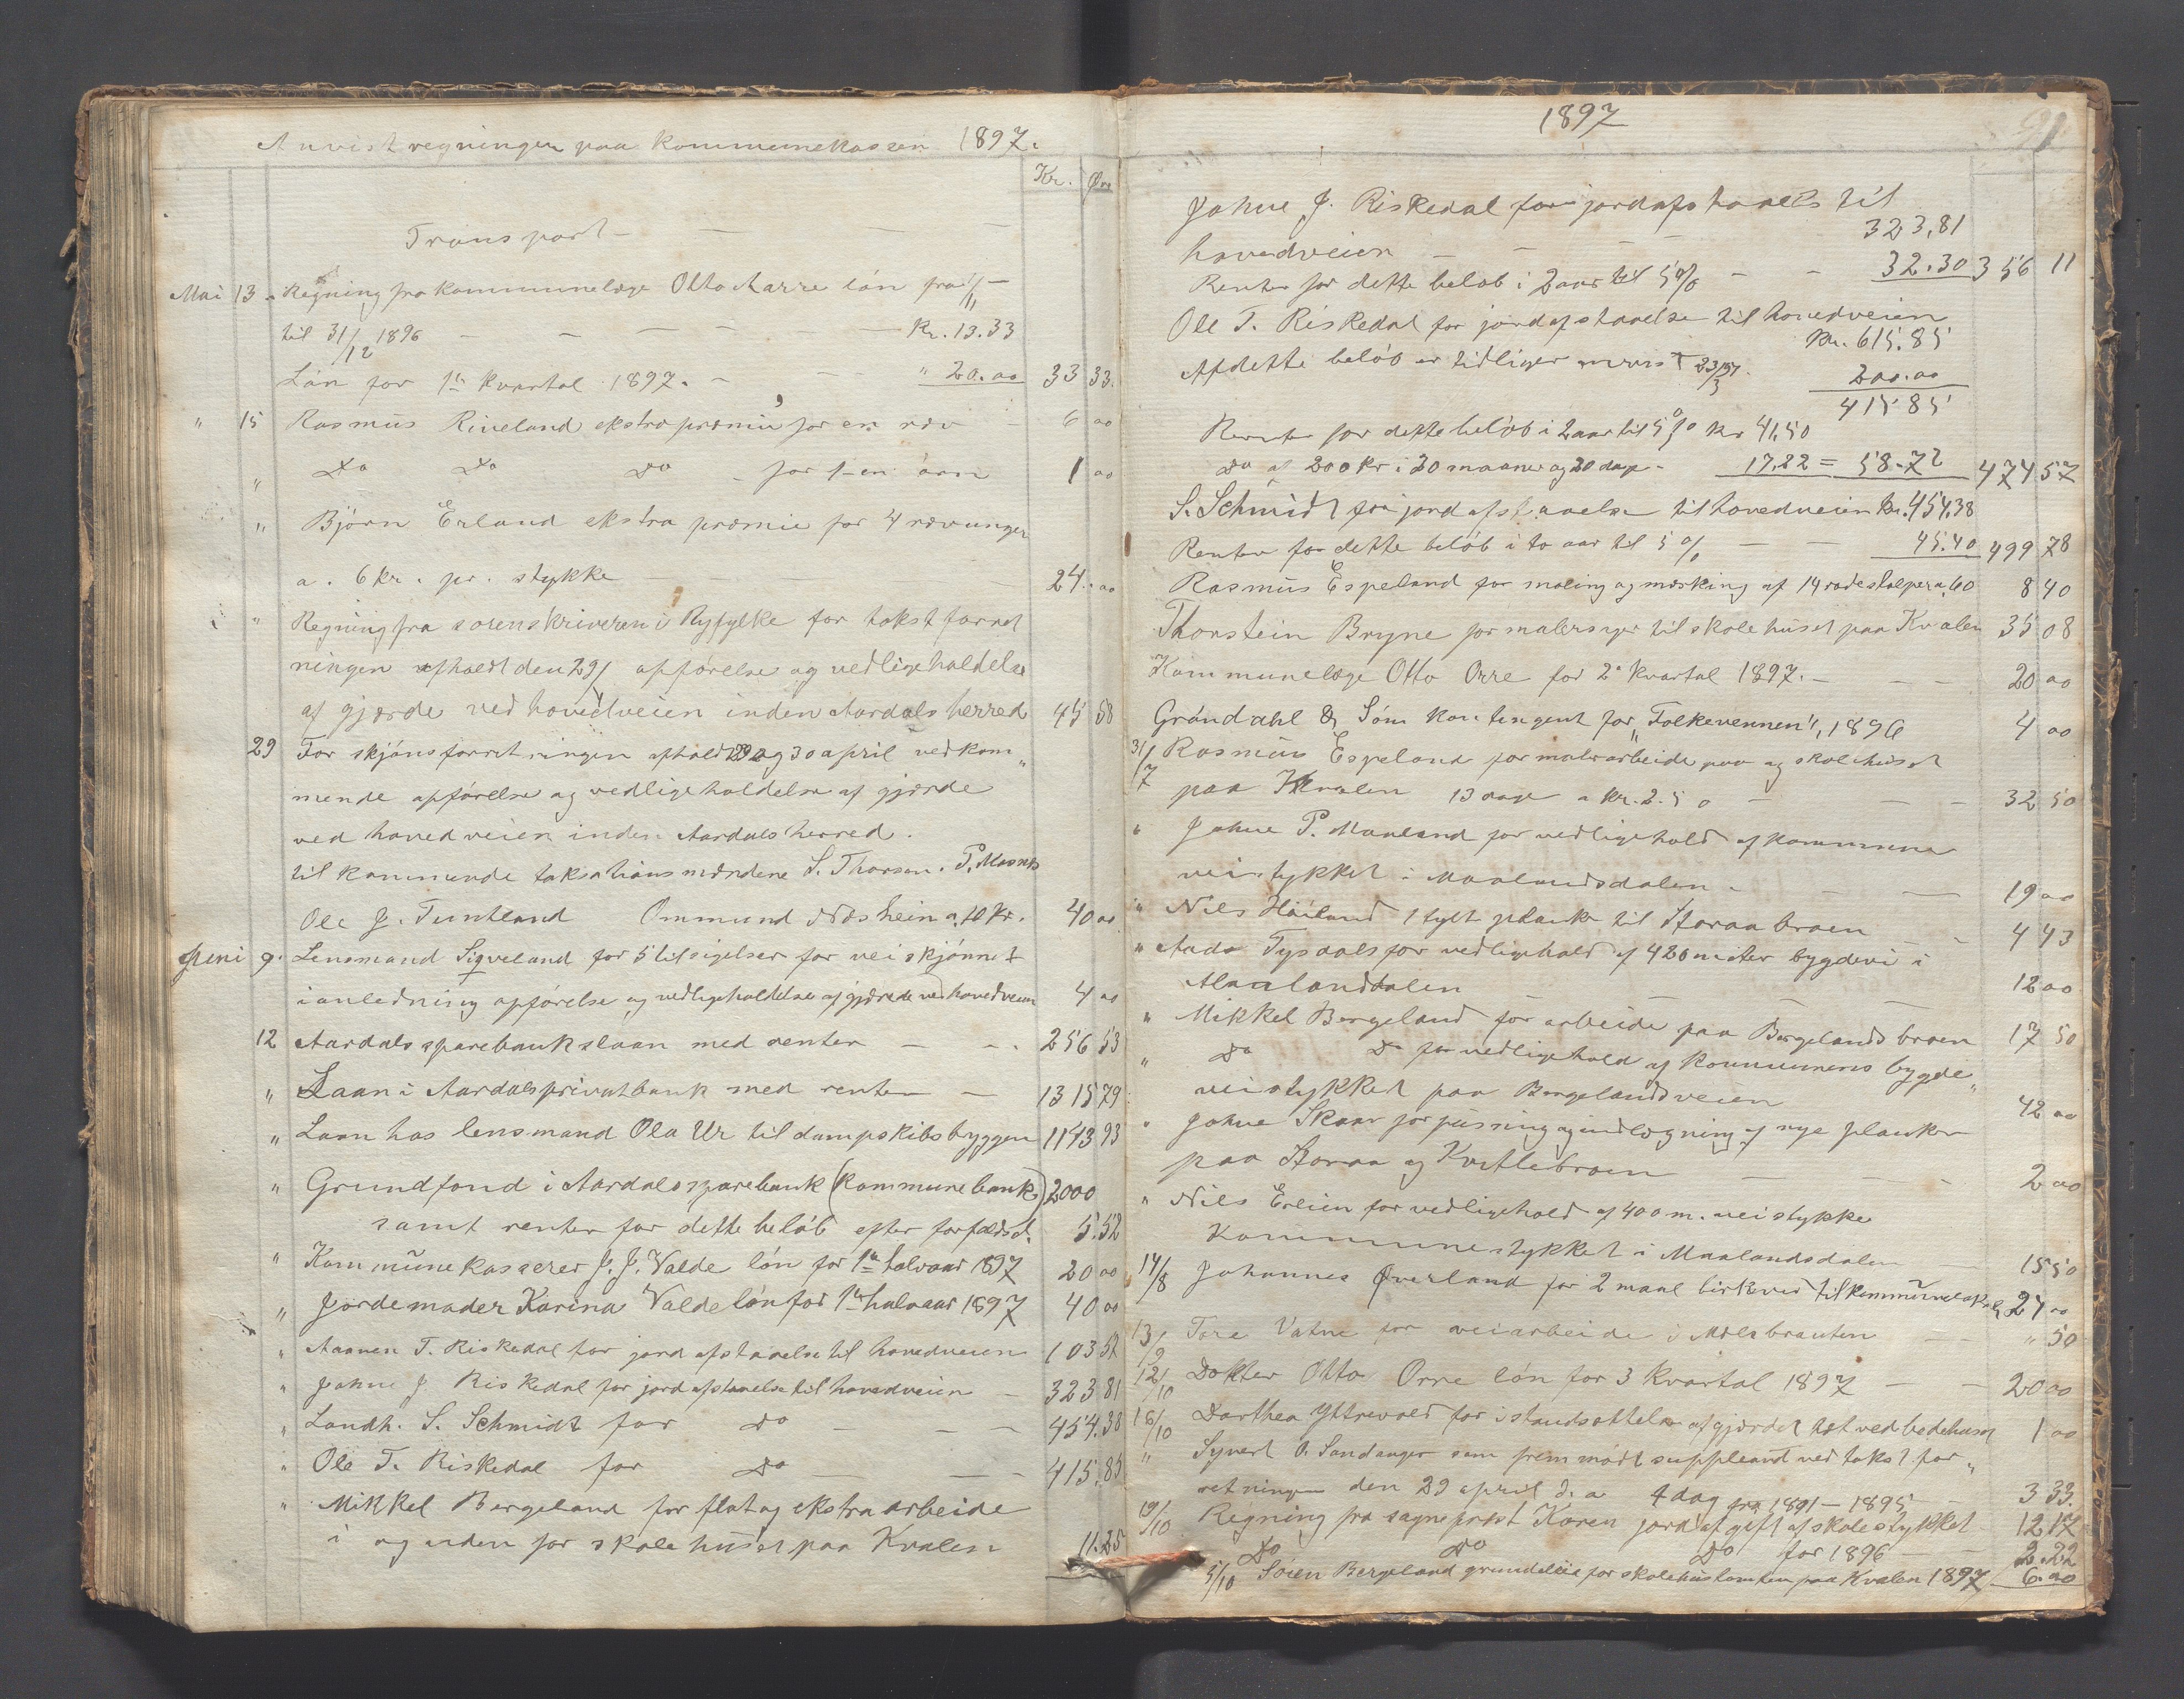 Anvist regninger paa Kommunekassen 1897.
Kr. Øre
Transport — — —
Mai 13. Regning fra kommunelæge Otto Aarre lön fra 1/11 —
til 31/12 1896 — — — — Kr. 13.33
Lön for 1ste Kvartal 1897. — — " 20.00 33 33.
" 15 Rasmus Riveland ekstra præmie for en ræv — 6 00
" Do Do Do for 1 en örn 1 00
" Björn Erland ekstra præmie for 4 rævunger
a. 6 kr. pr. stykke — — — 24. 00
" Regning fra sorenskriveren i Ryfylke for takstforret
ningen afholdt den 29/ opförelse og vedligeholdelse
af gjærde ved hovedveien inden Aardals herred 45 58
29 For skjönsforretningen afholdt 29 og 30 april vedkom"
mende opförelse og vedligeholdelse af gjærde
ved hovedveien inden Aardals herred.
til kommende taksationsmændene S. Thorsen. P. Mosnes
Ole J. Tuntland Ommund Næshein a. 10 Kr. 40 00
Juni 9. Lensmand Sigveland for 5 tilsigelser for veiskjönnet
i anledning opförelse og vedligeholdelse af gjærde ved hovedveien 4 00
12 Aardals sparebankslaan med renter — — 256 53
" Laan i Aardals privatbank med renter — 1315 79
" Laan hos lensmand Ola Ur til dampskibsbryggen 1143 93
" Grundfond i Aardals sparebank (Kommunebank) 2000
samt renter for dette belöb efter forfaldsd. 5.52
" Kommunekasserer J. J. Valde lön for 1ste halvaar 1897 20 00
" Jordemoder Karina Valde lön for 1ste halvaar 1897 40 00
" Aanen T. Riskedal for jordafstaaelse til hovedveien 103 52
" Johne J Riskedal for jordafstaaelse til hovedveien — 323 81
" Landh. S. Schmidt for Do — — — 454.38
" Ole T. Riskedal for Do — — — 415.85
" Mikkel Bergeland for flat og ekstra arbeide
i og uden for skolehuset paa Kvalen 11.25
1897
91
Johne J. Riskedal for jordafstaaelse til
hovedveien — — — — 323,81
Renter for dette belöb i 2 aar til 5 % — — 32.30 356 11
Ole T. Riskedal for jordafstaaelse til hovedveien
Kr. 615.85
Af dette belöb er tidligere anvist 23/3 97. 200.00
415 85
Renter for dette belöb i 2 aar til 5 % Kr 41,50
Do af 200 kr i 20 maaner og 20 dage — 17.22 = 58.72 474 57
S. Schmidt for jordafstaaelse til hovedveien Kr. 454.38
Renter for dette belöb i to aar til 5 % — — 45.40 499 78
Rasmus Espeland for maling og mærking af 14 rodestolper a, 60 8 40
Thorstein Bryne for malersager til skolehuset paa Kvalen 35 08
Kommunelæge Otto Orre for 2det Kvartal 1897. — — — 20 00
Gröndahl & Söns kontingent for "Folkevennen", 1896 4 00
31/7 Rasmus Espeland for malerarbeide paa og skolehuset
paa Kvalen 13 dage a Kr. 2.50 — — — 32 50
" Johne P. Maaland for vedligehold af kommune
veistykket i Maalandsdalen — — — 19 00
" Nils Höiland 1 tylt planker til Storaa broen — — 4 43
" Aada Tysdals for vedligehold af 420 meter bygdevei i
Maalandsdalen — — — 12 00
" Mikkel Bergeland for arbeide paa Bergelands broen 17 50
" Do Do for vedligehold af kommunens bygde"
veistykket paa Bergelandsveien 42 00
" Johne Skaar for pussing og indlægning af nye planker
paa Storaa og Kvitlebroen — — — 2 00
" Nils Erlien for vedligehold af 400 m. veistykke
Kommunestykket i Maalandsdalen — 15 50
14/8 Johannes Överland for 2 maal birkeved til kommunelokale 24 00
13/9 Tore Vatne for veiarbeide i Melsbrauten — — " 50
12/10 Dokter Otto Orre lön for 3 Kvartal 1897 — — 20 00
16/10 Dorthea Yttrevold for istandsættelse af gjærdet tæt ved bedehuset 1 00
" Syvert O. Sandanger som fremmödt suppleant ved takst for"
retningen den 29 april d. a 1 dag — 3 33.
19/10 Regning fra sogneprest Koren jordafgift af skolestykket fra 1891 — 1895 12 17
Do Do Do for 1896 — — 2.22
5/10 Sören Bergeland grundleie for skolehustomten paa Kvalen 1897 6.00